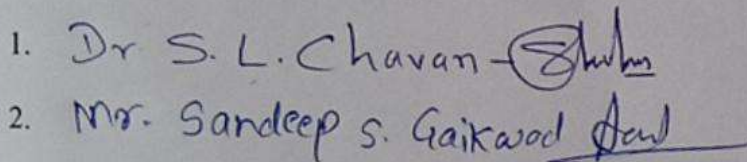 1. Dr S. L. Chavan -
2. Mr. Sandeep S. Gaikwad